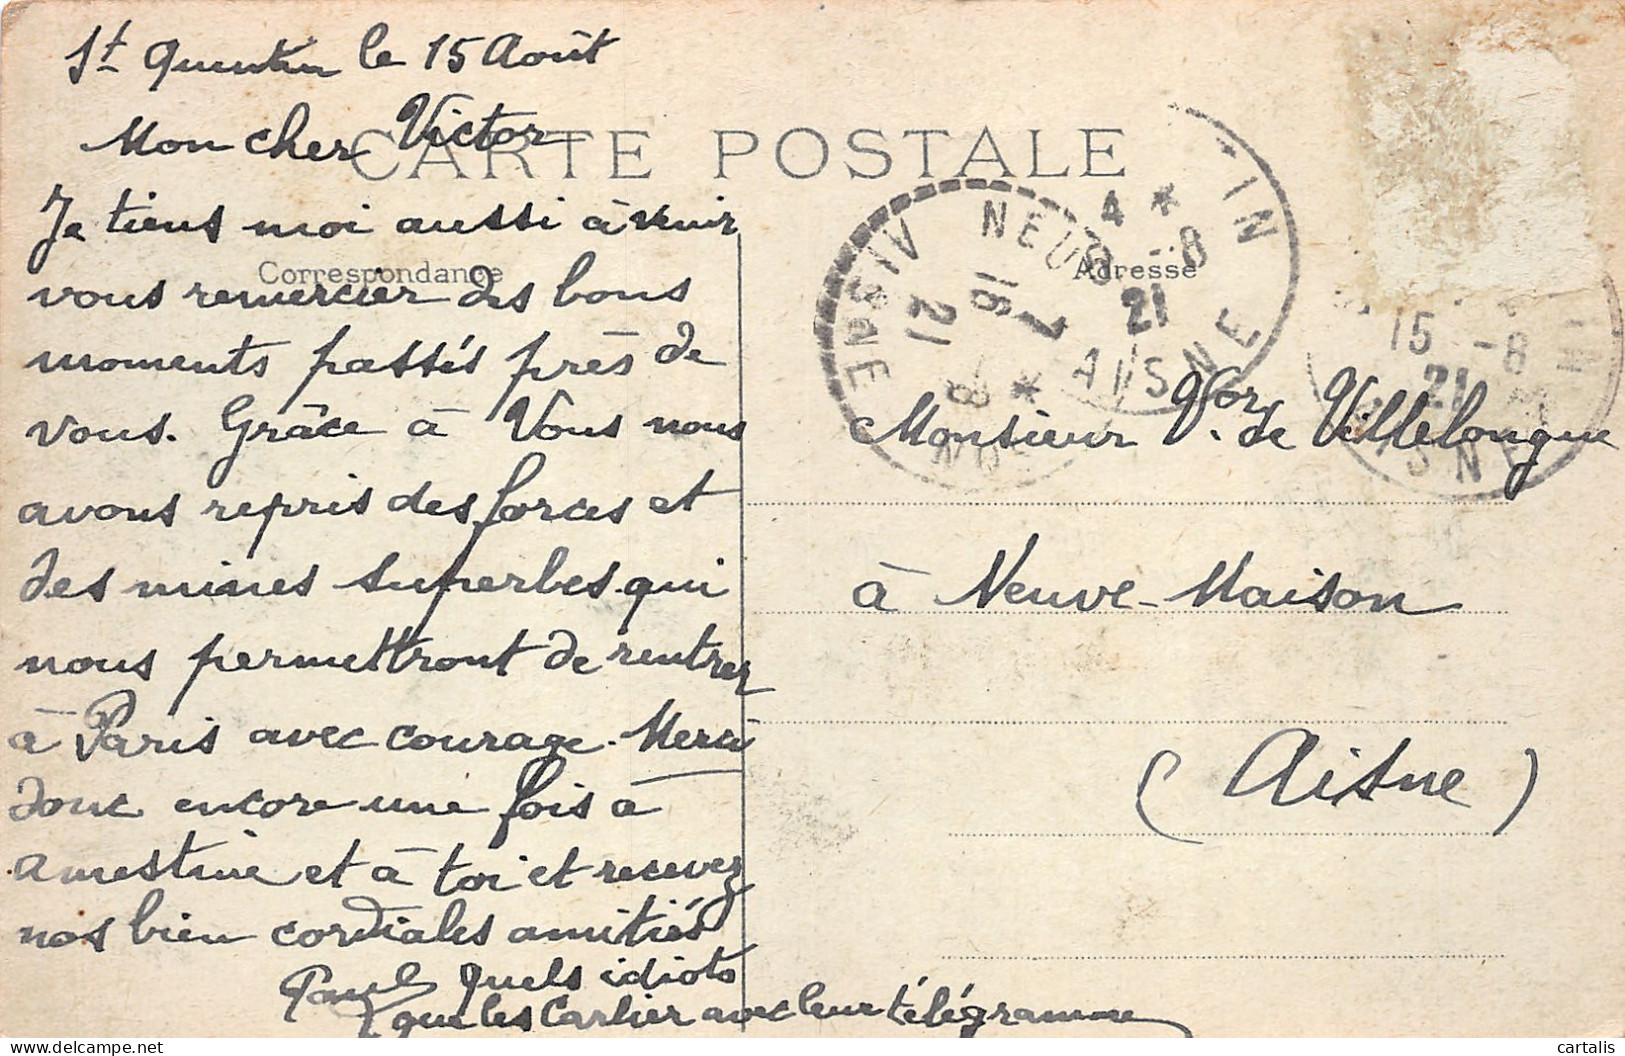 St Quentin le 15 Août
Mon cher Victor
CARTE POSTALE
Je tiens moi aussi à venir
Correspondance
vous remercier des bons
moments passés près de
vous. Grâce à Vous nous
avons repris des forces et
des mines superbes qui
nous permettront de rentrer
à Paris avec courage. Merci
donc encore une fois à
amestine et à toi et recevez
nos bien cordiales amitiés
Paul Quels idiots
que les Carlier avec leur télégramme
NEUVE
AISNE
18
7
21
4 *
-8
21
AISNE
Adresse
15 -8
21
AISNE
Monsieur Vor. de Villelongue
à Neuve-Maison
(Aisne)
cartalis